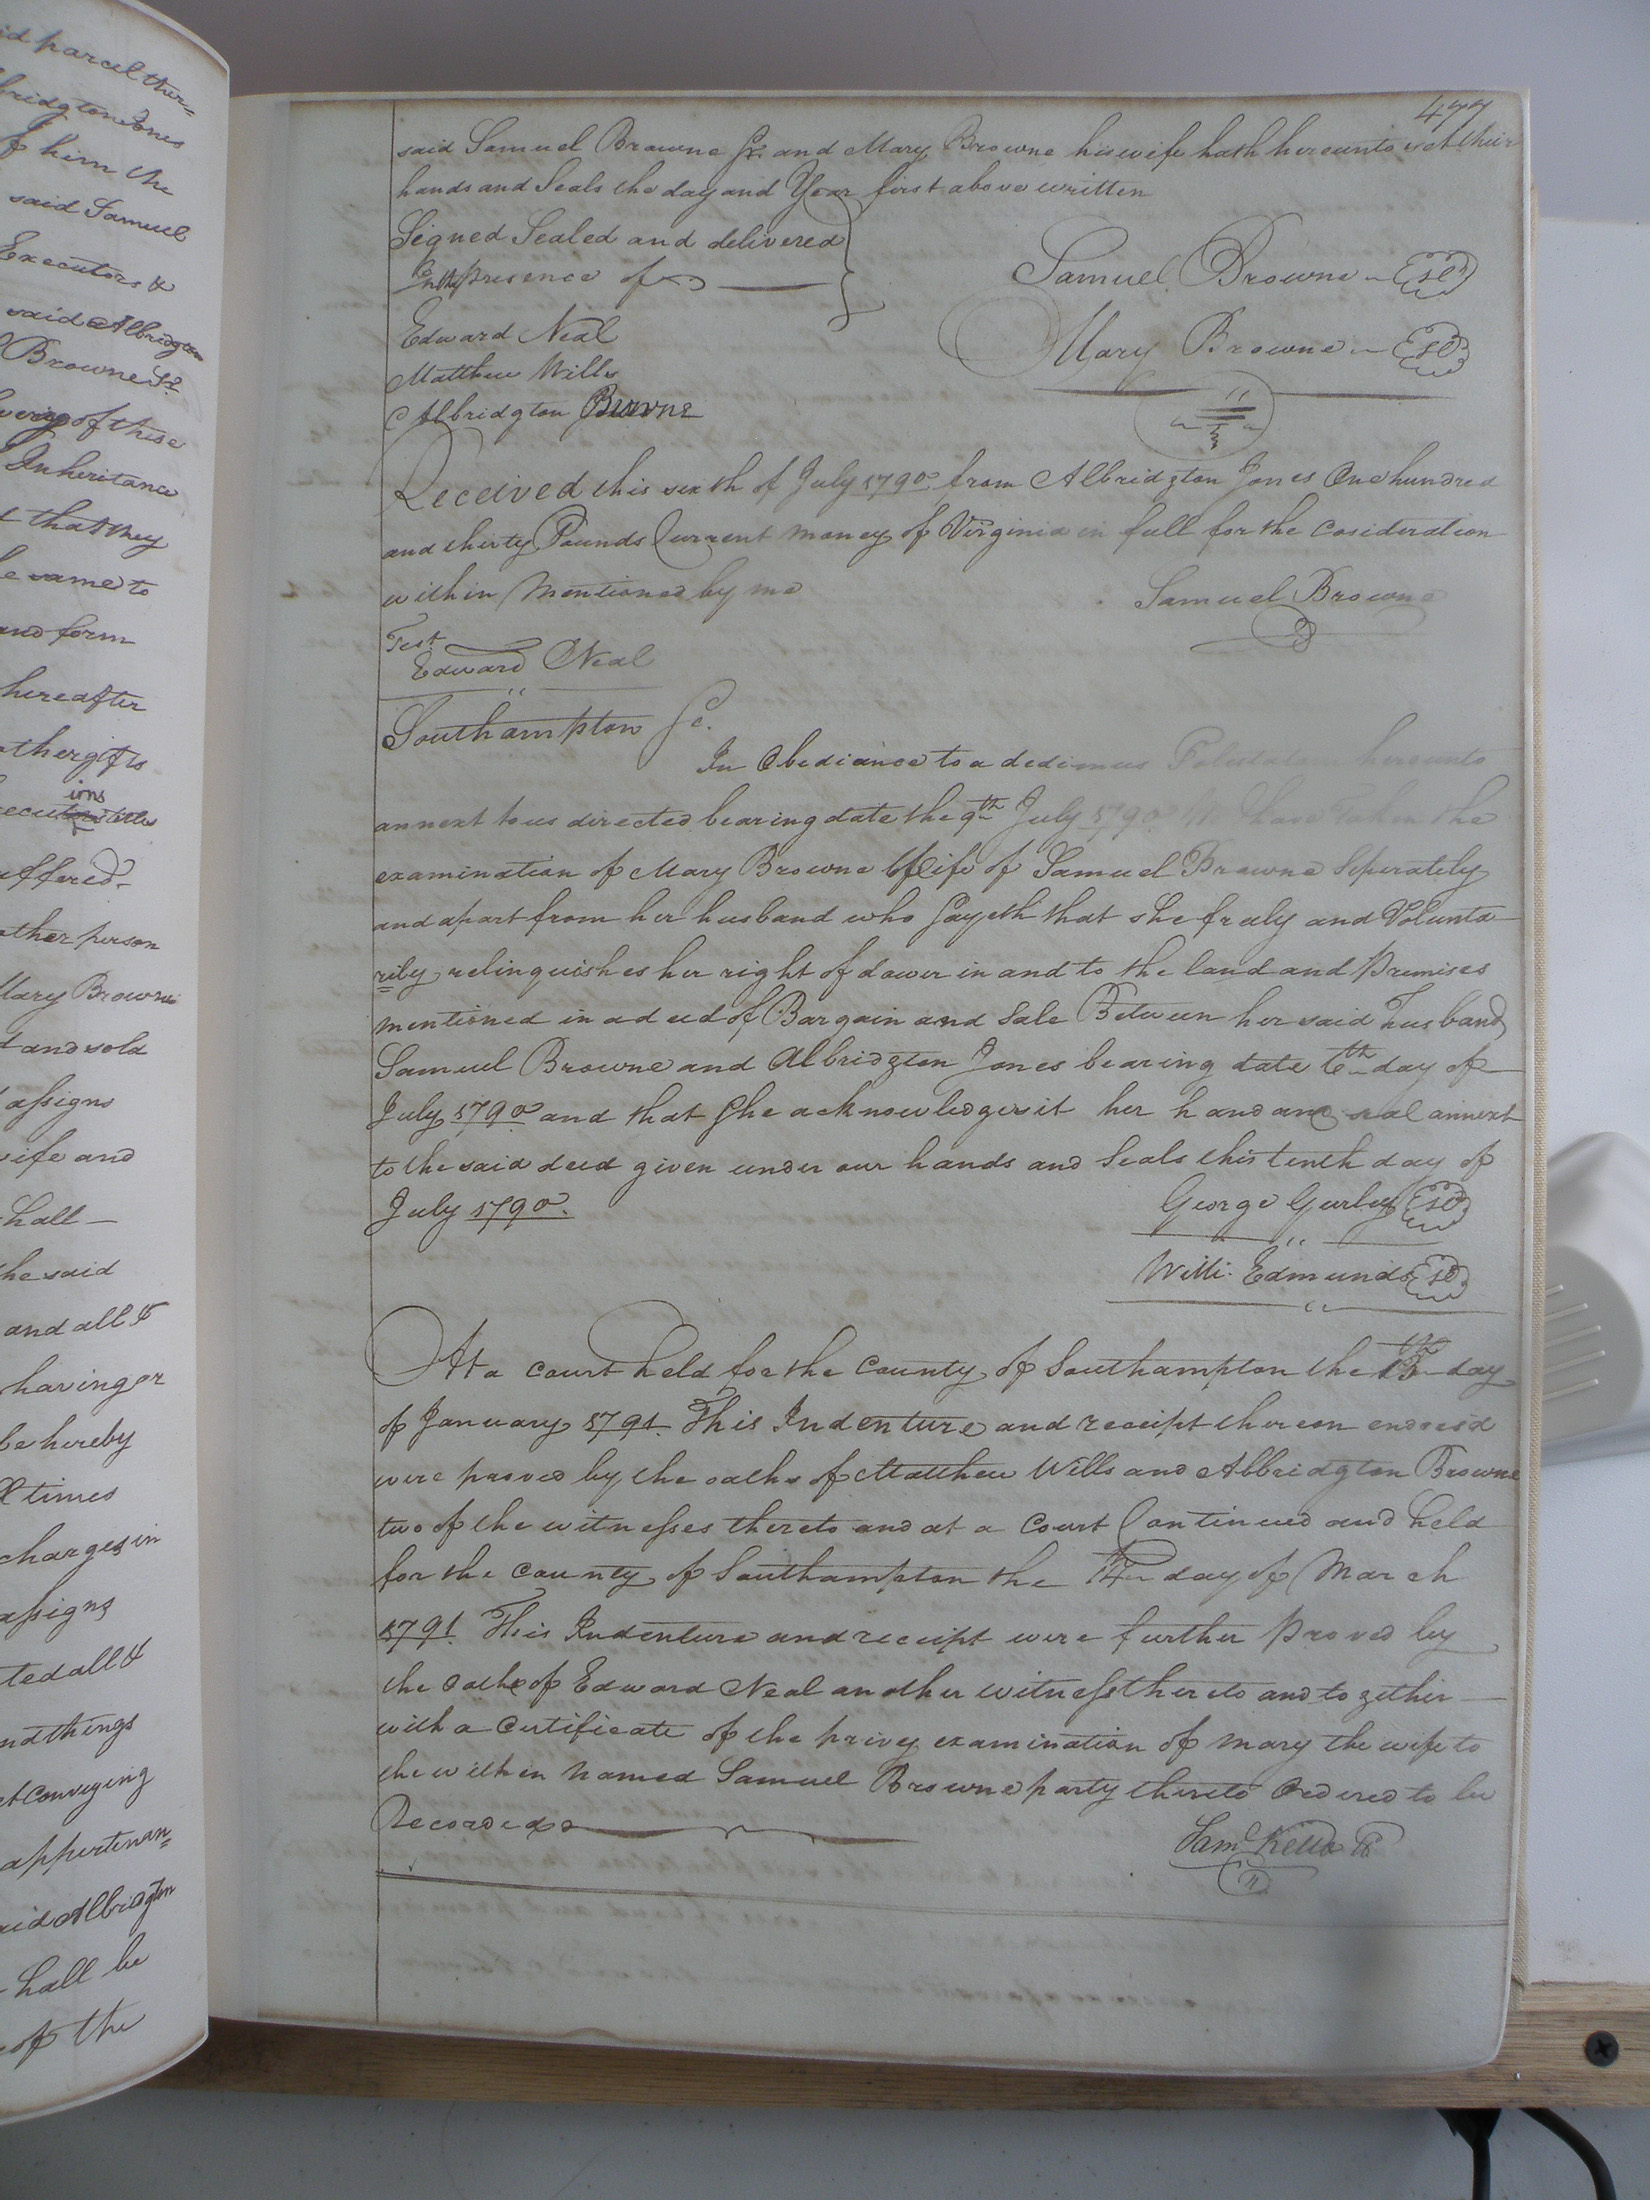 id parcel ther=
bridgton Jones
f him the
said Samuel
Executors &
said Albridgton
Browne Sr.
of these
Inheritance
t that they
e same to
and form
hereafter
other gifts
ions
uffered
other person
Mary Browne
t and sold
assigns
wife and
hall
he said
and all &
having or
be hereby
ll times
charges in
assigns
ted all &
nd things
et Conveying
appertenan=
aid Albridgton
hall be
of the
477
said Samuel Browne Sr. and Mary Browne his wife hath hereunto set their
hands and Seals the day and Year first above written
Signed Sealed and delivered
In the presence of
Samuel Browne
Edward Neal
Mary Browne
Matthew Wills
Albridgton Browne
Received this sixth of July 1790 from Albridgton Jones One hundred
and thirty Pounds Current money of Virginia in full for the Cosideration
within Mentioned by me
Samuel Browne
Test
Edward Neal
Southampton Sc.
In Obediance to a dedimus Potestatem hereunto
annext to us directed bearing date the 9th July 1790 We have Taken the
examination of Mary Browne Wife of Samuel Browne Seperately
and apart from her husband who Sayeth that she freely and Volunta
rily relinquishes her right of dower in and to the land and Premises
mentioned in a deed of Bargain and Sale Between her said Husband
Samuel Browne and Albridgton Jones bearing date 6th day of
July 1790 and that She acknowledges it her hand and seal annext
to the said deed given under our hands and Seals this tenth day of
July 1790.
George Gurley
Willi. Edmunds
At a Court held for the County of Southampton the 13th day
of January 1791 This Indenture and receipt thereon endors'd
were proved by the oaths of Matthew Wills and Albridgton Browne
two of the witnesses thereto and at a Court Continued and held
for the County of Southampton the day of March
1791. This Indenture and receipt were further Proved by
the Oath of Edward Neal another witness thereto and together
with a Certificate of the privy examination of Mary the wife to
the within named Samuel Browne party thereto Ordered to be
Recorded
Saml Kello